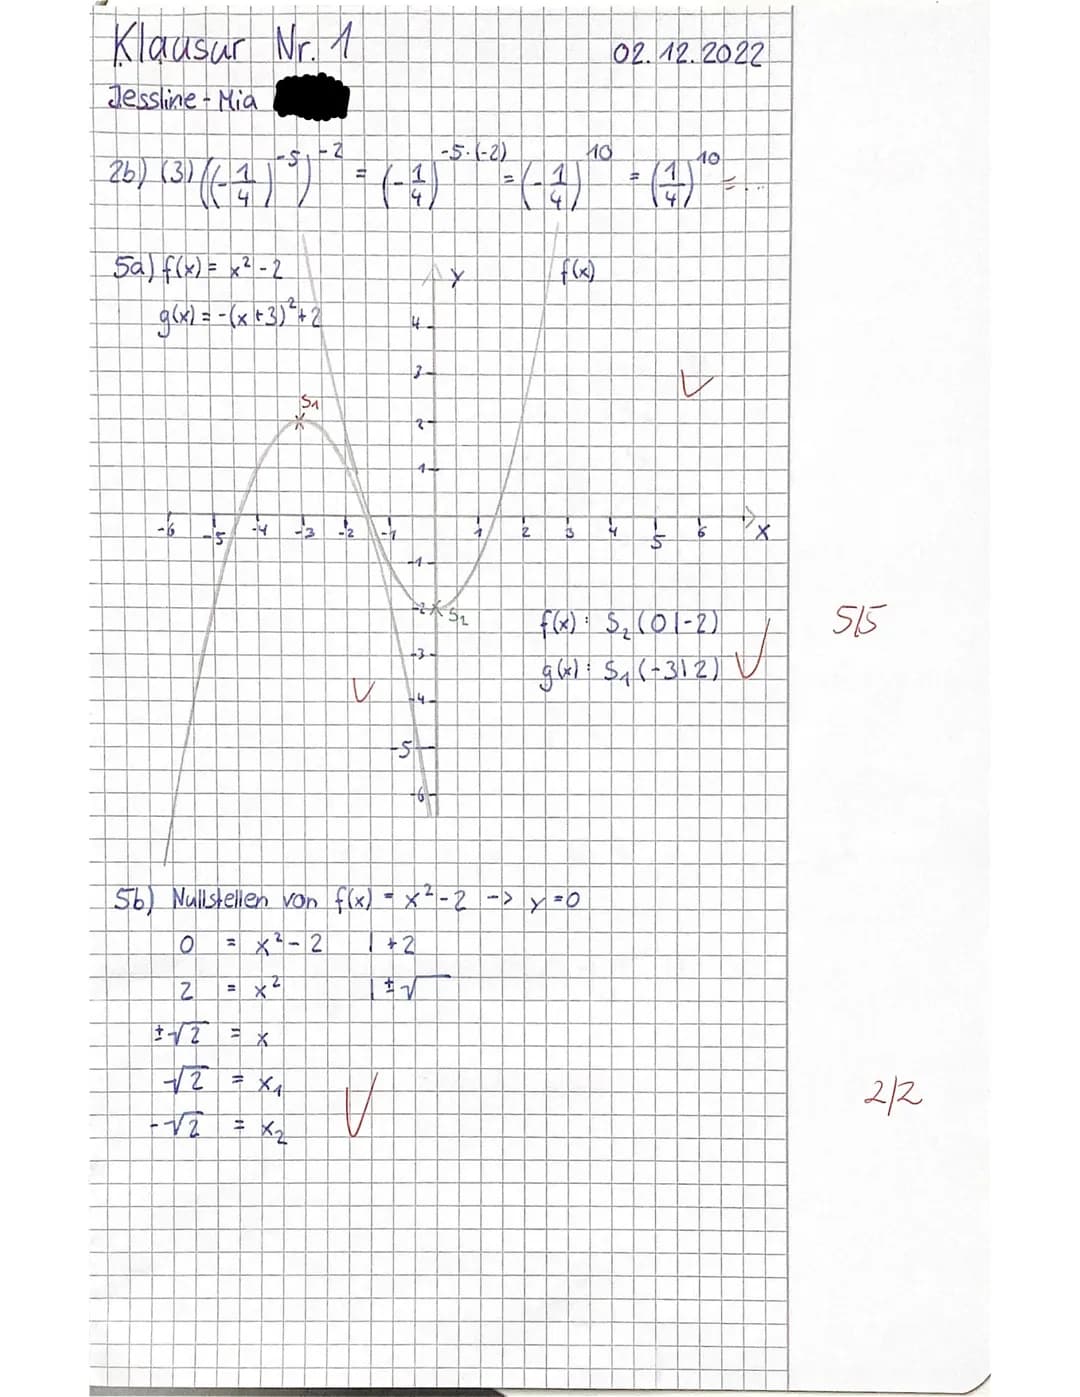 Klausur Nr. 1 02.12.2022
Jessline-Mia
2b) (3) ((-1/4)^-5)^-2 = (-1/4)^-5·(-2) = (-1/4)^10 = (1/4)^10 = ...
5a) f(x) = x² - 2
g(x) = -(x+3)² + 2
y f(x)
4
3
S₁
2
1
-6 -5 -4 -3 -2 -1 1 2 3 4 5 6 x
-1
-2 S₂
f(x): S₂(0|-2) 5/5
-3
g(x): S₁(-3|2)
-4
-5
-6
5b) Nullstellen von f(x) = x² - 2 -> y = 0
0 = x² - 2 | +2
2 = x² | ±√
±√2 = x
√2 = x₁ 2/2
-√2 = x₂